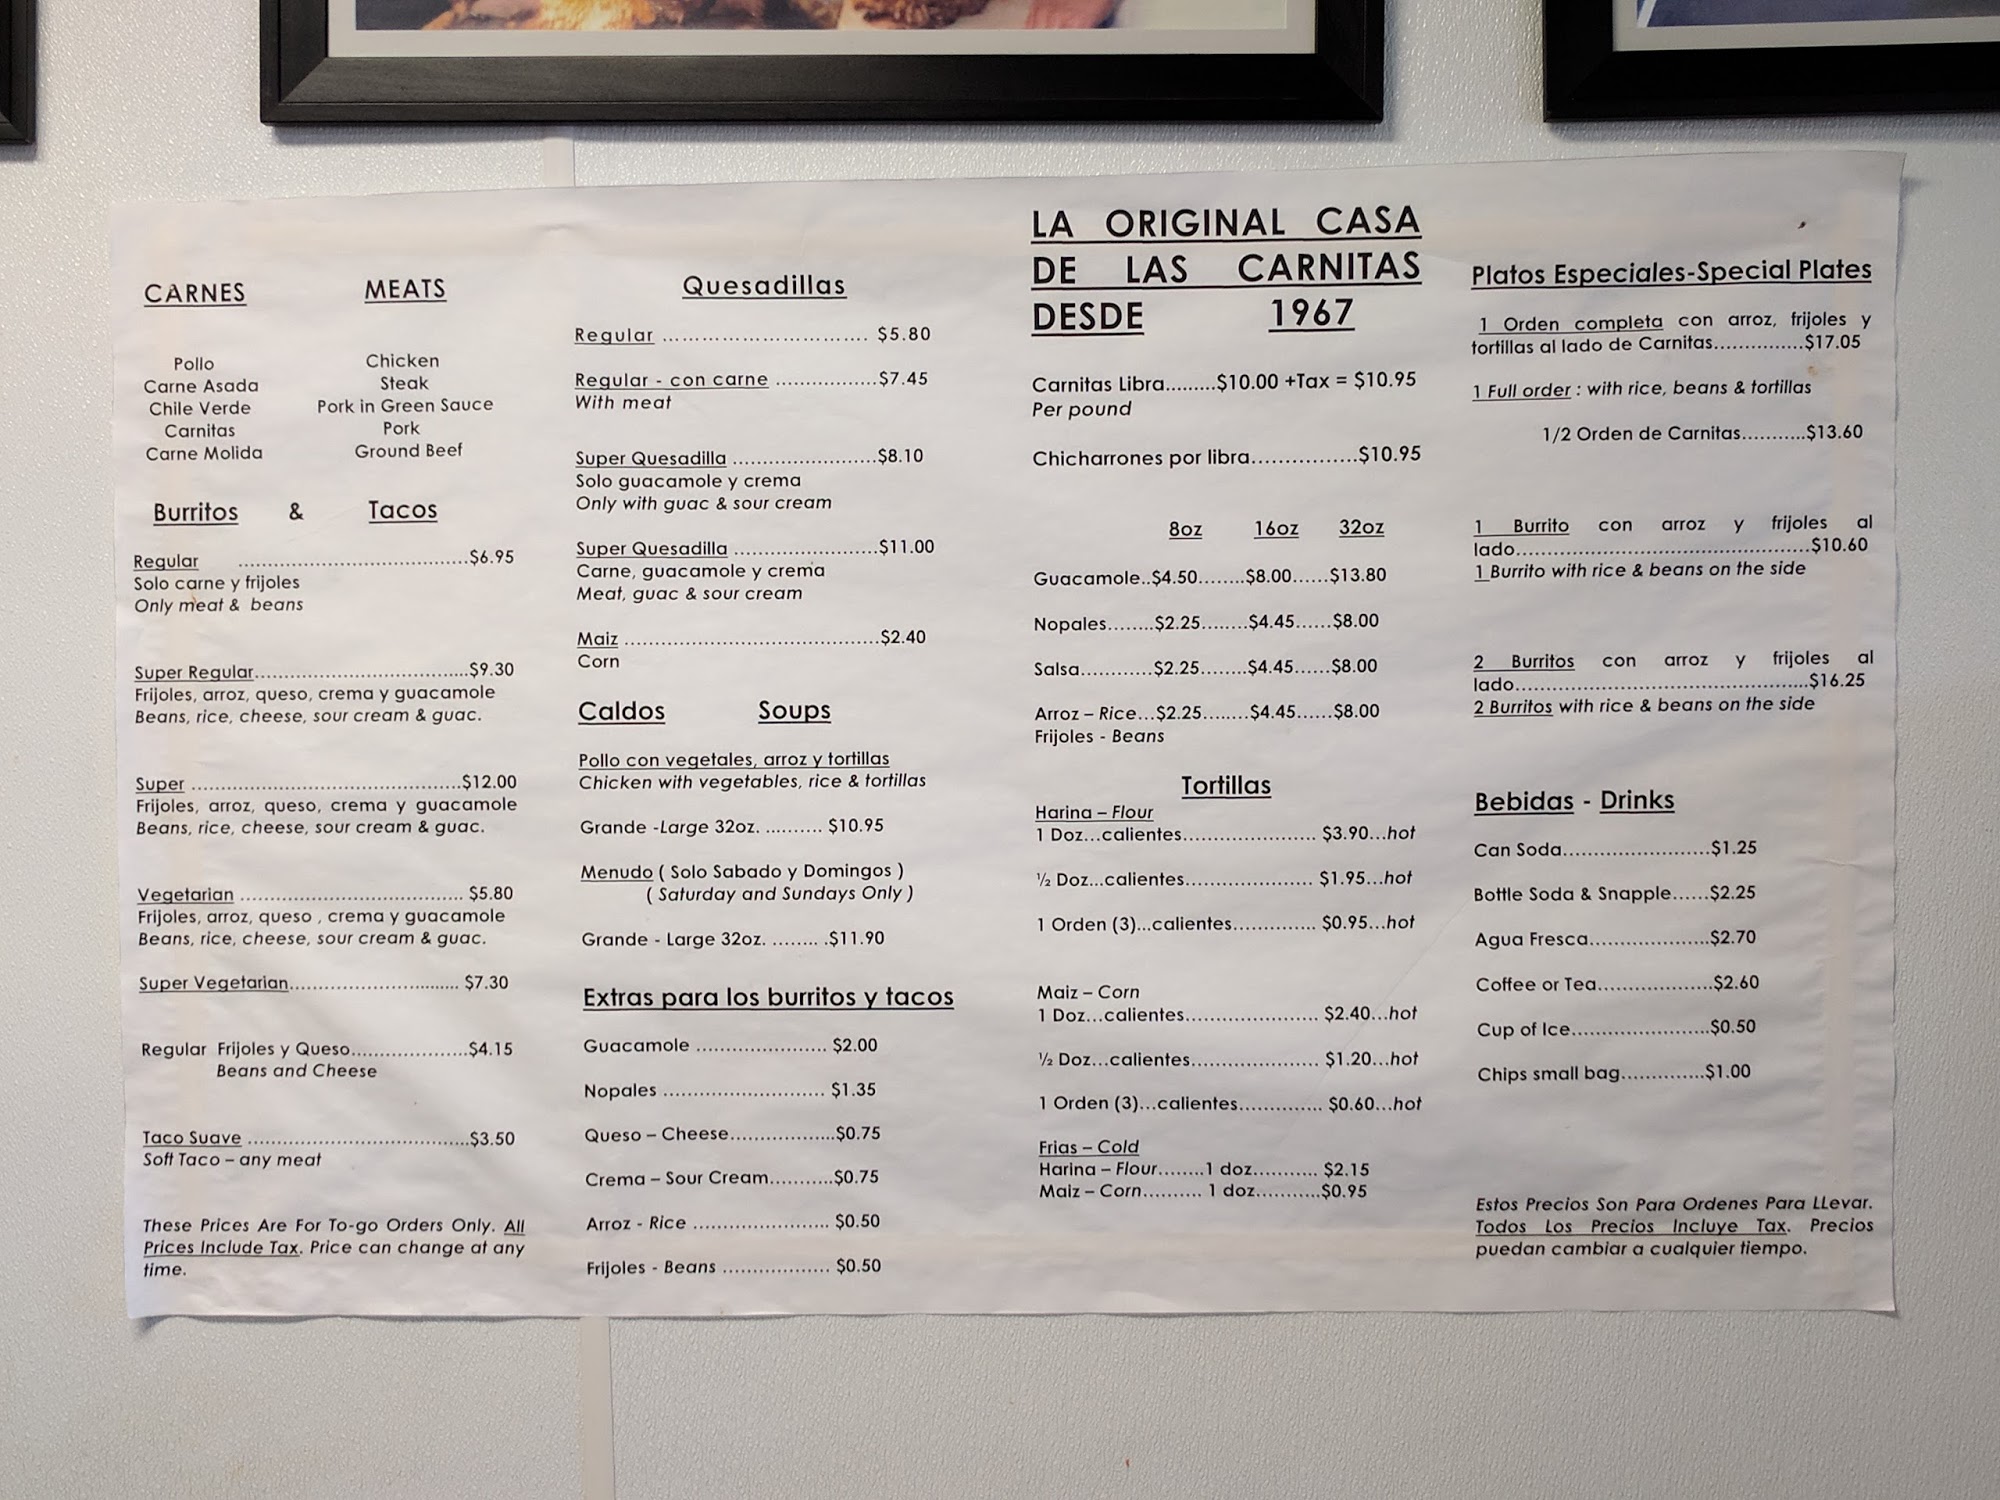 CARNES MEATS
Pollo Chicken
Carne Asada Steak
Chile Verde Pork in Green Sauce
Carnitas Pork
Carne Molida Ground Beef
Burritos & Tacos
Regular ........................................$6.95
Solo carne y frijoles
Only meat & beans
Super Regular........................................$9.30
Frijoles, arroz, queso, crema y guacamole
Beans, rice, cheese, sour cream & guac.
Super ..............................................$12.00
Frijoles, arroz, queso, crema y guacamole
Beans, rice, cheese, sour cream & guac.
Vegetarian ...................................... $5.80
Frijoles, arroz, queso , crema y guacamole
Beans, rice, cheese, sour cream & guac.
Super Vegetarian.............................. $7.30
Regular Frijoles y Queso....................$4.15
Beans and Cheese
Taco Suave ......................................$3.50
Soft Taco – any meat
These Prices Are For To-go Orders Only. All
Prices Include Tax. Price can change at any
time.
Quesadillas
Regular ................................ $5.80
Regular - con carne .................$7.45
With meat
Super Quesadilla ........................$8.10
Solo guacamole y crema
Only with guac & sour cream
Super Quesadilla ........................$11.00
Carne, guacamole y crema
Meat, guac & sour cream
Maiz ...........................................$2.40
Corn
Caldos Soups
Pollo con vegetales, arroz y tortillas
Chicken with vegetables, rice & tortillas
Grande -Large 32oz. .......... $10.95
Menudo ( Solo Sabado y Domingos )
( Saturday and Sundays Only )
Grande - Large 32oz. ........ .$11.90
Extras para los burritos y tacos
Guacamole ...................... $2.00
Nopales ........................... $1.35
Queso – Cheese..................$0.75
Crema – Sour Cream...........$0.75
Arroz - Rice ....................... $0.50
Frijoles - Beans .................. $0.50
LA ORIGINAL CASA
DE LAS CARNITAS
DESDE 1967
Carnitas Libra.........$10.00 +Tax = $10.95
Per pound
Chicharrones por libra.................$10.95
8oz 16oz 32oz
Guacamole..$4.50........$8.00......$13.80
Nopales........$2.25........$4.45......$8.00
Salsa............$2.25........$4.45......$8.00
Arroz – Rice...$2.25........$4.45......$8.00
Frijoles - Beans
Tortillas
Harina – Flour
1 Doz...calientes....................... $3.90...hot
½ Doz...calientes...................... $1.95...hot
1 Orden (3)...calientes.............. $0.95...hot
Maiz – Corn
1 Doz...calientes....................... $2.40...hot
½ Doz...calientes...................... $1.20...hot
1 Orden (3)...calientes.............. $0.60...hot
Frias – Cold
Harina – Flour........1 doz........... $2.15
Maiz – Corn.......... 1 doz...........$0.95
Platos Especiales-Special Plates
1 Orden completa con arroz, frijoles y
tortillas al lado de Carnitas...............$17.05
1 Full order : with rice, beans & tortillas
1/2 Orden de Carnitas...........$13.60
1 Burrito con arroz y frijoles al
lado.................................................$10.60
1 Burrito with rice & beans on the side
2 Burritos con arroz y frijoles al
lado.................................................$16.25
2 Burritos with rice & beans on the side
Bebidas - Drinks
Can Soda.........................$1.25
Bottle Soda & Snapple......$2.25
Agua Fresca.....................$2.70
Coffee or Tea....................$2.60
Cup of Ice........................$0.50
Chips small bag..............$1.00
Estos Precios Son Para Ordenes Para LLevar.
Todos Los Precios Incluye Tax. Precios
puedan cambiar a cualquier tiempo.